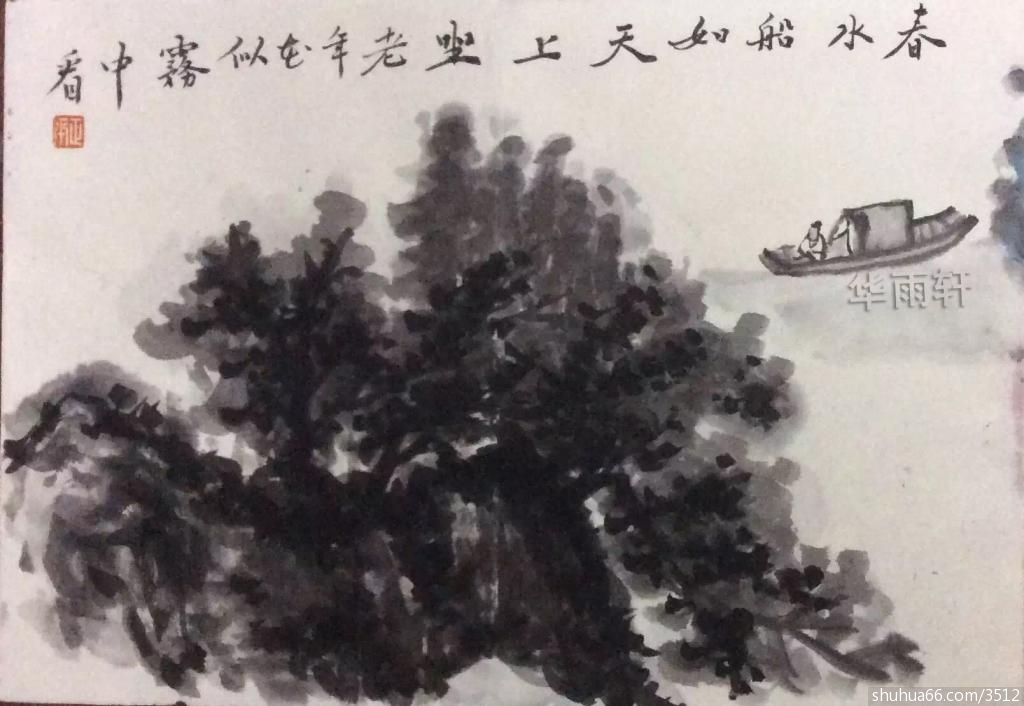 春水船如天上坐老年花似霧中看
华雨轩
shuhua66.com/3512